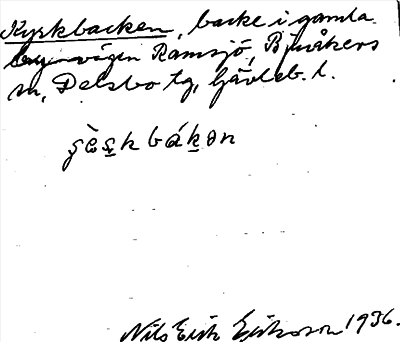 Kyrkbacken, backe i gamla
byvägen Ramsjö, Bjuråkers
sn, Delsbo tg, Gävleb. l.
Nils Erik Eriksson 1936.